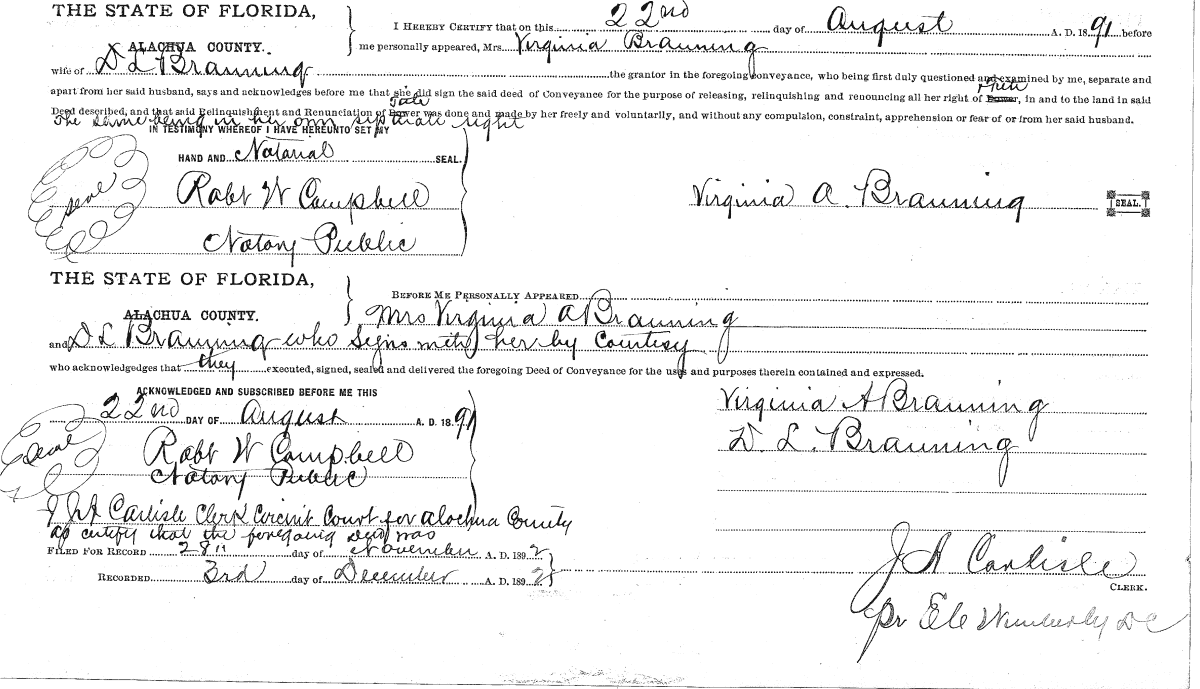 THE STATE OF FLORIDA,
ALACHUA COUNTY.
I HEREBY CERTIFY that on this 22nd day of August A. D. 1891 before
me personally appeared, Mrs. Virginia Branning
wife of D L Branning the grantor in the foregoing conveyance, who being first duly questioned and examined by me, separate and
apart from her said husband, says and acknowledges before me that she did sign the said deed of Conveyance for the purpose of releasing, relinquishing and renouncing all her right of Dower, in and to the land in said
Deed described, and that said Relinquishment and Renunciation of Dower was done and made by her freely and voluntarily, and without any compulsion, constraint, apprehension or fear of or from her said husband.
the same being in her own right
IN TESTIMONY WHEREOF I HAVE HEREUNTO SET MY
HAND AND Notarial SEAL.
Seal
Robt W Campbell
Notary Public
Virginia A. Branning
SEAL.
THE STATE OF FLORIDA,
ALACHUA COUNTY.
BEFORE ME PERSONALLY APPEARED
Mrs Virginia A Branning
and D L Branning who signs with her by Courtisy
who acknowledgeges that they executed, signed, sealed and delivered the foregoing Deed of Conveyance for the uses and purposes therein contained and expressed.
ACKNOWLEDGED AND SUBSCRIBED BEFORE ME THIS
22nd DAY OF August A. D. 1891
Seal
Robt W Campbell
Notary Public
Virginia A Branning
D. L. Branning
I J A Carlisle Clerk Circuit Court for Alachua County
do certify that the foregoing deed was
FILED FOR RECORD 28" day of November A. D. 1892
RECORDED 3rd day of December A. D. 1892
J A Carlisle
CLERK.
pr Wimberly D C